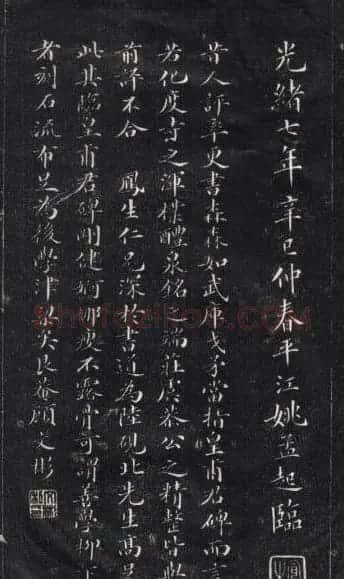 光緒七年辛巳仲春平江姚孟起臨
昔人評率更書森森如武庫戈矛當指皇甫君碑而言
若化度寺之渾樸醴泉銘之端莊虞恭公之精整皆與
前評不合 鳳生仁兄深於書道為陸硯北先生高足
此其臨皇甫君碑剛健婀娜瘦不露骨可謂善學柳下
者刻石流布足為後學津梁矣艮菴顧文彬
Shufaziliao.com